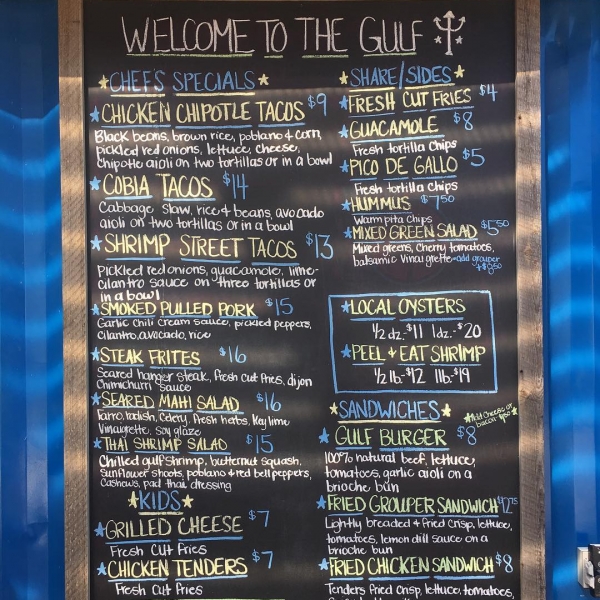 WELCOME TO THE GULF
CHEF'S SPECIALS
CHICKEN CHIPOTLE TACOS $9
Black beans, brown rice, poblano & corn,
pickled red onions, lettuce, cheese,
chipotle aioli on two tortillas or in a bowl
COBIA TACOS $14
Cabbage slaw, rice & beans, avocado
aioli on two tortillas or in a bowl
SHRIMP STREET TACOS $13
Pickled red onions, guacamole, lime-
cilantro sauce on three tortillas or
in a bowl
SMOKED PULLED PORK $15
Garlic Chili cream sauce, pickled peppers,
cilantro, avocado, rice
STEAK FRITES $16
Seared hanger steak, fresh cut fries, dijon
Chimichurri sauce
SEARED MAHI SALAD $16
Farro, radish, celery, fresh herbs, key lime
Vinaigrette, soy glaze
THAI SHRIMP SALAD $15
Chilled gulf shrimp, butternut squash,
sunflower shoots, poblano & red bell peppers,
cashews, pad thai dressing
KIDS
GRILLED CHEESE $7
Fresh Cut Fries
CHICKEN TENDERS $7
Fresh Cut Fries
SHARE/SIDES
FRESH CUT FRIES $4
GUACAMOLE $8
Fresh tortilla Chips
PICO DE GALLO $5
Fresh tortilla Chips
HUMMUS $7.50
Warm pita Chips
MIXED GREEN SALAD $5.50
Mixed greens, Cherry tomatoes,
balsamic Vinaigrette-add grouper
+$8.50
LOCAL OYSTERS
1/2 dz.-$11 1dz.-$20
PEEL & EAT SHRIMP
1/2 lb.-$12 1lb.-$19
SANDWICHES
Add Cheese or
bacon
GULF BURGER $8
100% natural beef, lettuce,
tomatoes, garlic aioli on a
brioche bun
FRIED GROUPER SANDWICH $12.75
Lightly breaded & fried crisp, lettuce,
tomatoes, lemon dill sauce on a
brioche bun
FRIED CHICKEN SANDWICH $8
Tenders fried crisp, lettuce, tomatoes,